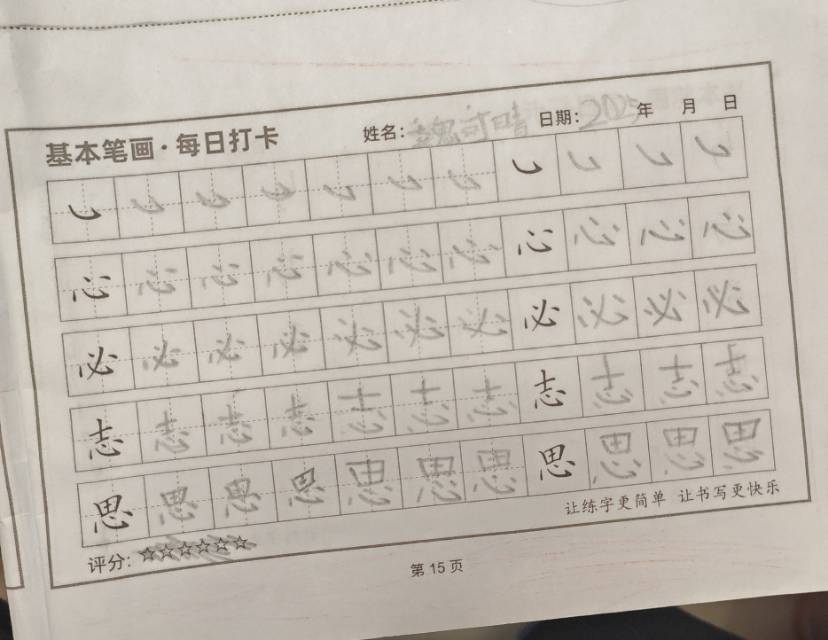 基本笔画·每日打卡 姓名：魏可晴 日期：2025年 月 日
㇃ ㇃ ㇃ ㇃ ㇃ ㇃ ㇃ ㇃ ㇃ ㇃ ㇃
心 心 心 心 心 心 心 心 心 心 心
必 必 必 必 必 必 必 必 必 必 必
志 志 志 志 志 志 志 志 志 志 志
思 思 思 思 思 思 思 思 思 思 思
让练字更简单 让书写更快乐
评分：☆☆☆☆☆☆
第 15 页